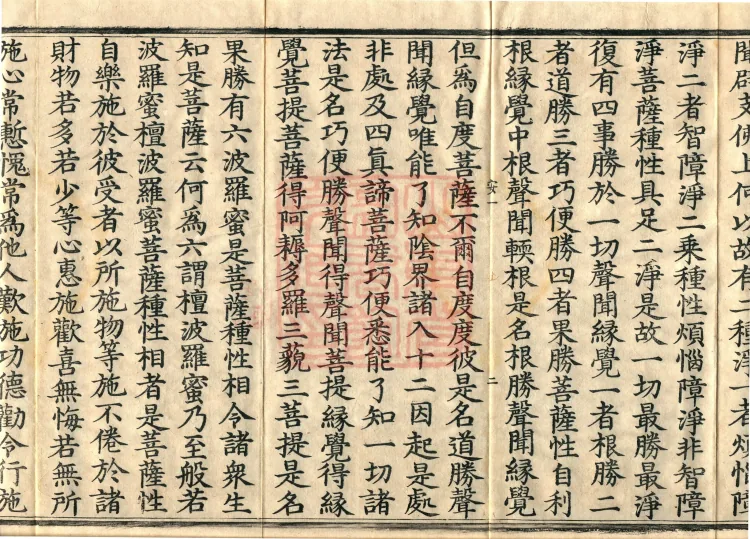 聞辟支佛上何以故有二種淨一者煩惱障
淨二者智障淨二乘種性煩惱障淨非智障
淨菩薩種性具足二淨是故一切最勝最淨
復有四事勝於一切聲聞縁覺一者根勝二
者道勝三者巧便勝四者果勝菩薩性自利
根縁覺中根聲聞輭根是名根勝聲聞縁覺
二
但爲自度菩薩不爾自度度彼是名道勝聲
聞縁覺唯能了知陰界諸入十二因起是處
非處及四眞諦菩薩巧便悉能了知一切諸
法是名巧便勝聲聞得聲聞菩提縁覺得縁
覺菩提菩薩得阿耨多羅三藐三菩提是名
果勝有六波羅蜜是菩薩種性相令諸衆生
知是菩薩云何爲六謂檀波羅蜜乃至般若
波羅蜜檀波羅蜜菩薩種性相者是菩薩性
自樂施於彼受者以所施物等施不倦於諸
財物若多若少等心惠施歡喜無悔若無所
施心常慙愧常爲他人歎施功德勸令行施